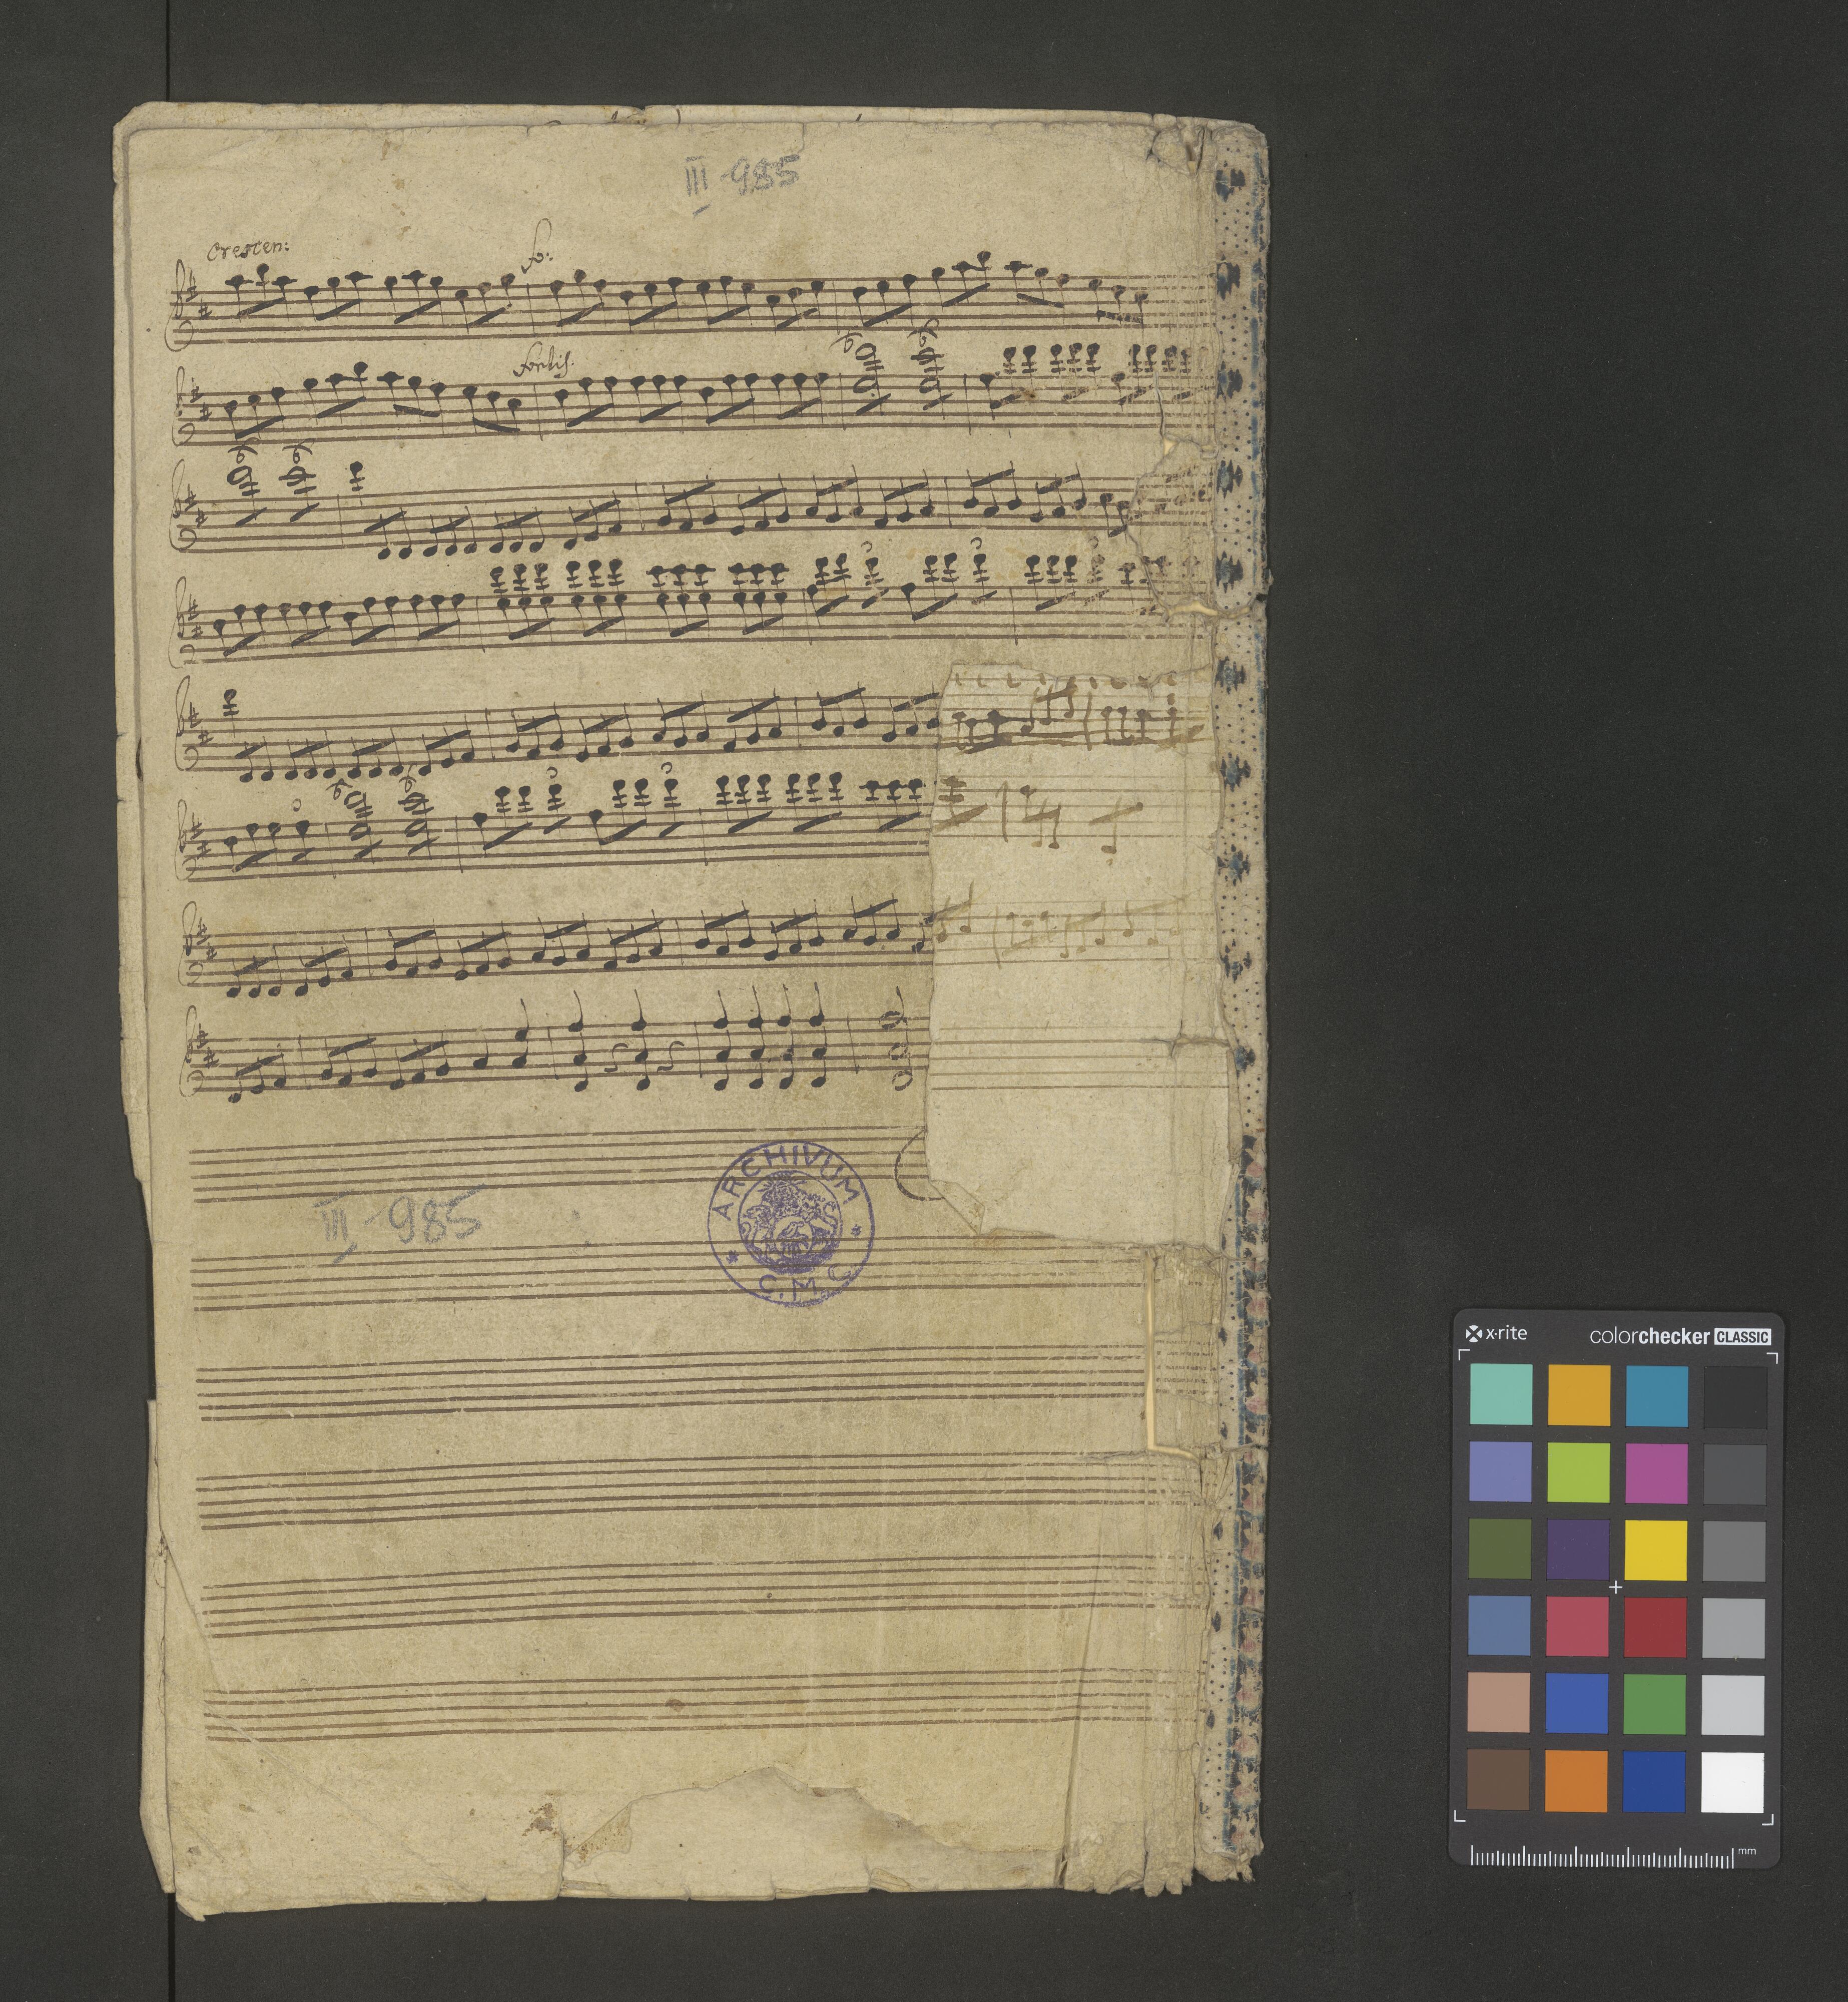 III-985
Crescen:
fo:
fortis:
III-985
ARCHIVUM
C.M.C.
x·rite
colorchecker CLASSIC
mm